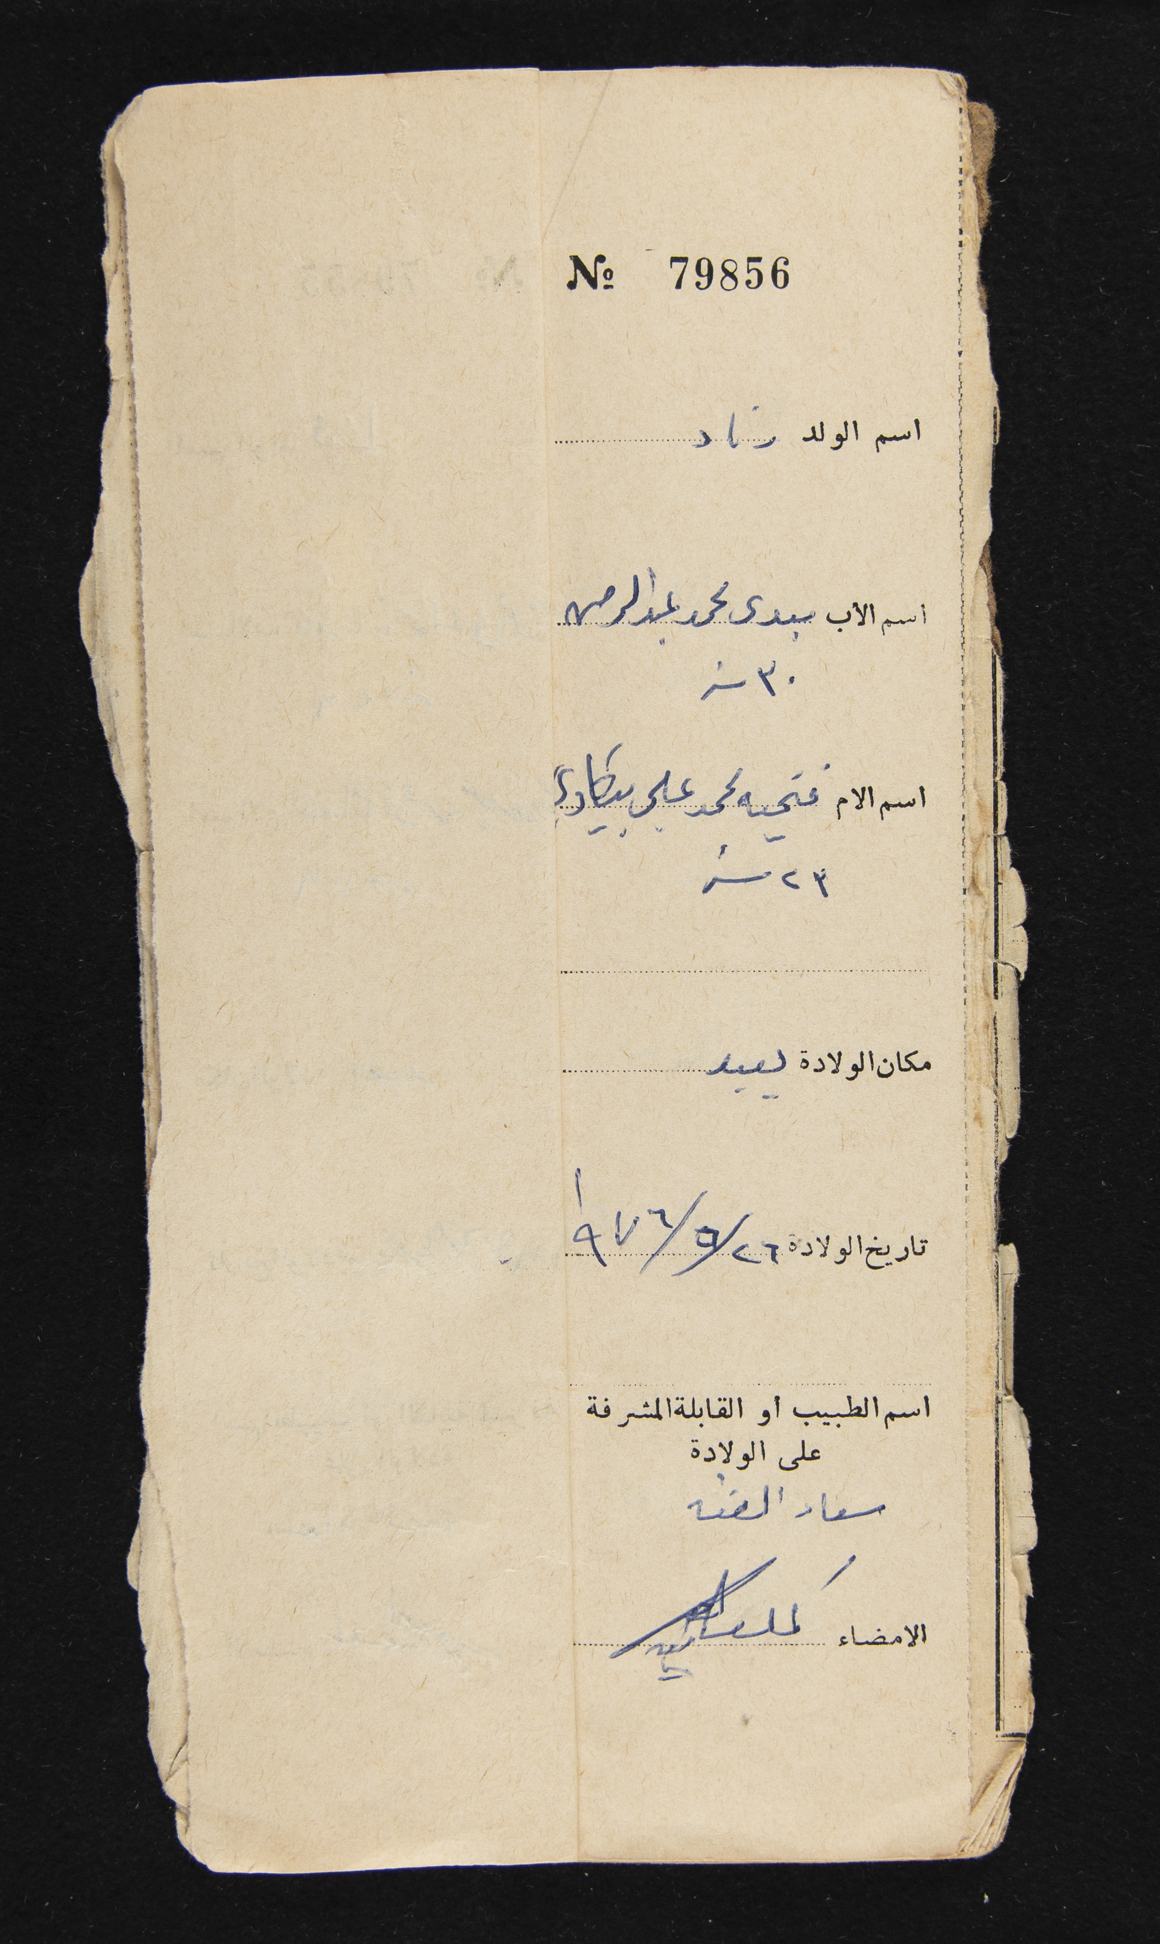 № 79856
اسم الولد زياد
اسم الأب بيدى محمد عبد الرحمن
٣٠ سنة
اسم الام فتحيه محمد علي
٢٣ سنة
مكان الولادة يعبد
تاريخ الولادة ٢٦/٥/١٩٧٦
اسم الطبيب او القابلة المشرفة
على الولادة
سعاد
الامضاء